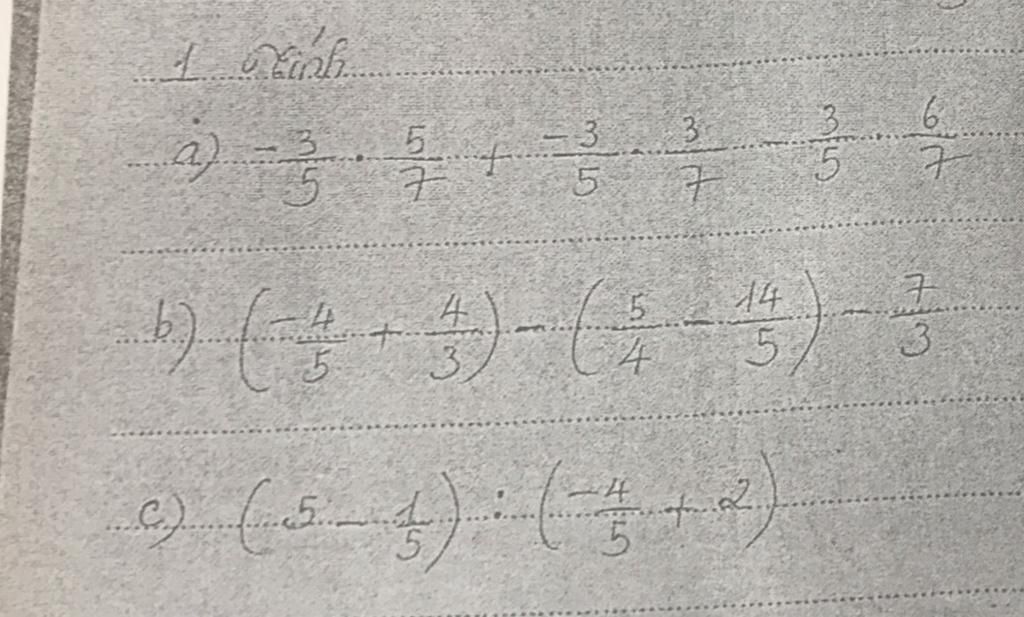 1 Tính
a) -3/5 . 5/7 + -3/5 . 3/7 - 3/5 . 6/7
b) (-4/5 + 4/3) - (5/4 - 14/5) - 7/3
c) (5 - 1/5) : (-4/5 + 2)